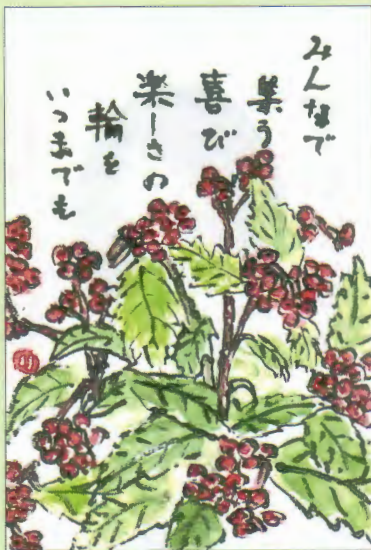 みんなで
集う
喜び
楽しさの
輪を
いつまでも